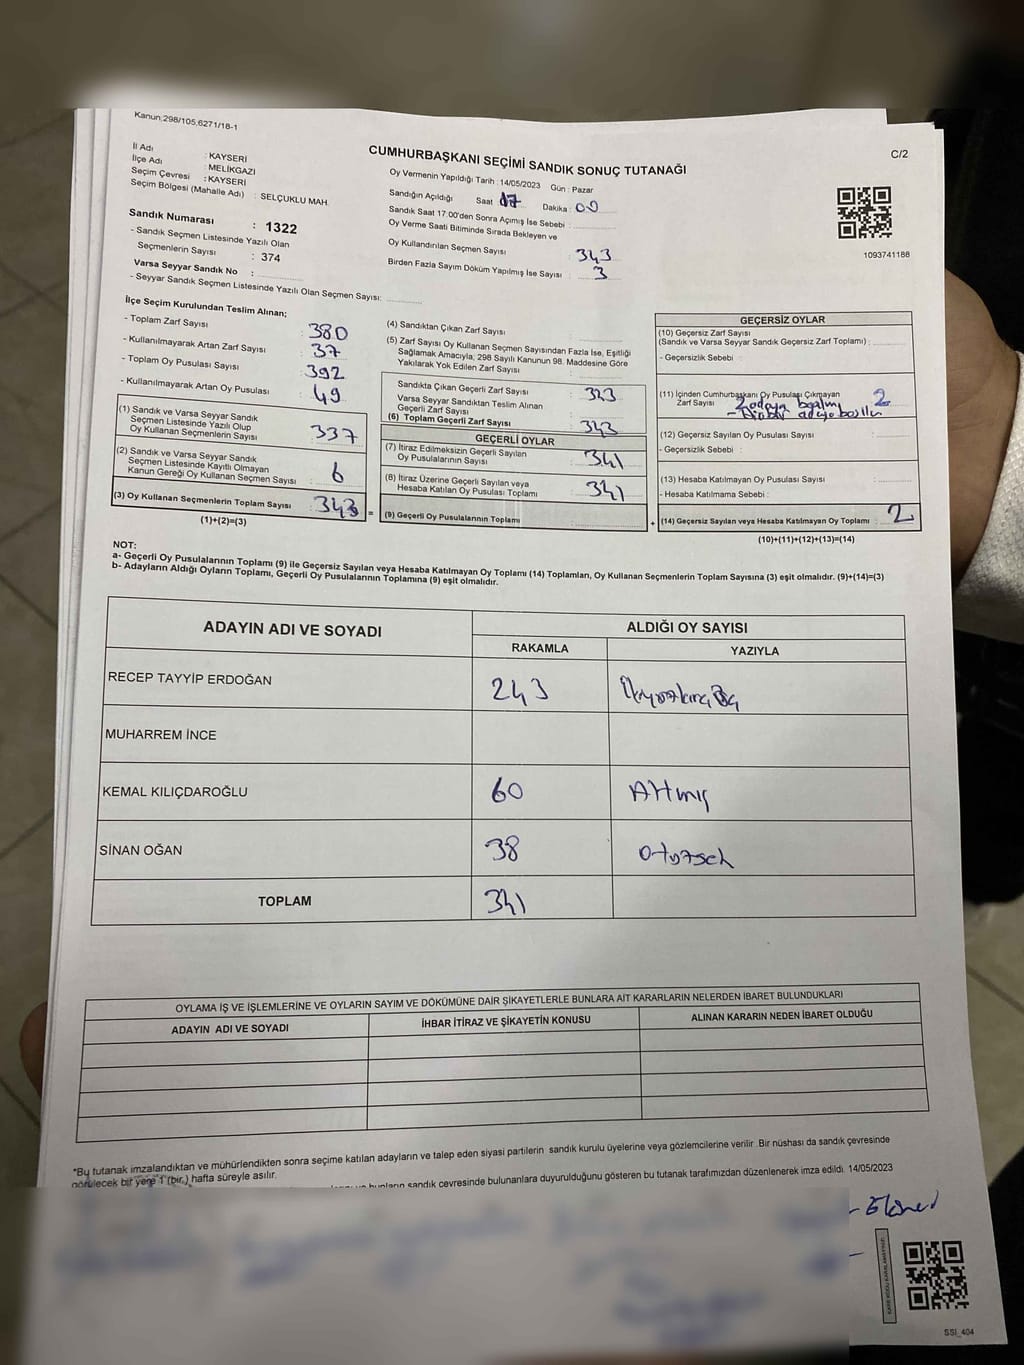 Kanun:298/105,6271/18-1
C/2
CUMHURBAŞKANI SEÇİMİ SANDIK SONUÇ TUTANAĞI
İl Adı : KAYSERİ
İlçe Adı : MELİKGAZİ
Seçim Çevresi : KAYSERİ
Seçim Bölgesi (Mahalle Adı) : SELÇUKLU MAH.
Sandık Numarası : 1322
- Sandık Seçmen Listesinde Yazılı Olan
Seçmenlerin Sayısı : 374
Varsa Seyyar Sandık No :
- Seyyar Sandık Seçmen Listesinde Yazılı Olan Seçmen Sayısı:
Oy Vermenin Yapıldığı Tarih : 14/05/2023 Gün : Pazar
Sandığın Açıldığı Saat 17 Dakika : 00
Sandık Saat 17.00'den Sonra Açımış İse Sebebi :
Oy Verme Saati Bitiminde Sırada Bekleyen ve
Oy Kullandırılan Seçmen Sayısı : 343
Birden Fazla Sayım Döküm Yapılmış İse Sayısı : 3
1093741188
İlçe Seçim Kurulundan Teslim Alınan;
- Toplam Zarf Sayısı : 380
- Kullanılmayarak Artan Zarf Sayısı : 37
- Toplam Oy Pusulası Sayısı : 392
- Kullanılmayarak Artan Oy Pusulası : 49
(1) Sandık ve Varsa Seyyar Sandık
Seçmen Listesinde Yazılı Olup
Oy Kullanan Seçmenlerin Sayısı : 337
(2) Sandık ve Varsa Seyyar Sandık
Seçmen Listesinde Kayıtlı Olmayan
Kanun Gereği Oy Kullanan Seçmen Sayısı : 6
(3) Oy Kullanan Seçmenlerin Toplam Sayısı : 343
(1)+(2)=(3)
(4) Sandıktan Çıkan Zarf Sayısı :
(5) Zarf Sayısı Oy Kullanan Seçmen Sayısından Fazla İse, Eşitliği
Sağlamak Amacıyla, 298 Sayılı Kanunun 98. Maddesine Göre
Yakılarak Yok Edilen Zarf Sayısı :
Sandıkta Çıkan Geçerli Zarf Sayısı : 343
Varsa Seyyar Sandıktan Teslim Alınan
Geçerli Zarf Sayısı :
(6) Toplam Geçerli Zarf Sayısı : 343
GEÇERLİ OYLAR
(7) İtiraz Edilmeksizin Geçerli Sayılan
Oy Pusulalarının Sayısı : 341
(8) İtiraz Üzerine Geçerli Sayılan veya
Hesaba Katılan Oy Pusulası Toplamı : 341
= (9) Geçerli Oy Pusulalarının Toplamı :
GEÇERSİZ OYLAR
(10) Geçersiz Zarf Sayısı
(Sandık ve Varsa Seyyar Sandık Geçersiz Zarf Toplamı) :
- Geçersizlik Sebebi :
(11) İçinden Cumhurbaşkanı Oy Pusulası Çıkmayan
Zarf Sayısı 2
(12) Geçersiz Sayılan Oy Pusulası Sayısı :
- Geçersizlik Sebebi :
(13) Hesaba Katılmayan Oy Pusulası Sayısı :
- Hesaba Katılmama Sebebi :
+ (14) Geçersiz Sayılan veya Hesaba Katılmayan Oy Toplamı : 2
(10)+(11)+(12)+(13)=(14)
NOT:
a- Geçerli Oy Pusulalarının Toplamı (9) ile Geçersiz Sayılan veya Hesaba Katılmayan Oy Toplamı (14) Toplamları, Oy Kullanan Seçmenlerin Toplam Sayısına (3) eşit olmalıdır. (9)+(14)=(3)
b- Adayların Aldığı Oyların Toplamı, Geçerli Oy Pusulalarının Toplamına (9) eşit olmalıdır.
ADAYIN ADI VE SOYADI
ALDIĞI OY SAYISI
RAKAMLA YAZIYLA
RECEP TAYYİP ERDOĞAN 243
MUHARREM İNCE
KEMAL KILIÇDAROĞLU 60 Altmış
SİNAN OĞAN 38 otuzsek
TOPLAM 341
OYLAMA İŞ VE İŞLEMLERİNE VE OYLARIN SAYIM VE DÖKÜMÜNE DAİR ŞİKAYETLERLE BUNLARA AİT KARARLARIN NELERDEN İBARET BULUNDUKLARI
ADAYIN ADI VE SOYADI İHBAR İTİRAZ VE ŞİKAYETİN KONUSU ALINAN KARARIN NEDEN İBARET OLDUĞU
*Bu tutanak imzalandıktan ve mühürlendikten sonra seçime katılan adayların ve talep eden siyasi partilerin sandık kurulu üyelerine veya gözlemcilerine verilir .Bir nüshası da sandık çevresinde
görülecek bir yere 1 (bir.) hafta süreyle asılır.
bunların sandık çevresinde bulunanlara duyurulduğunu gösteren bu tutanak tarafımızdan düzenlenerek imza edildi. 14/05/2023
SSI_404